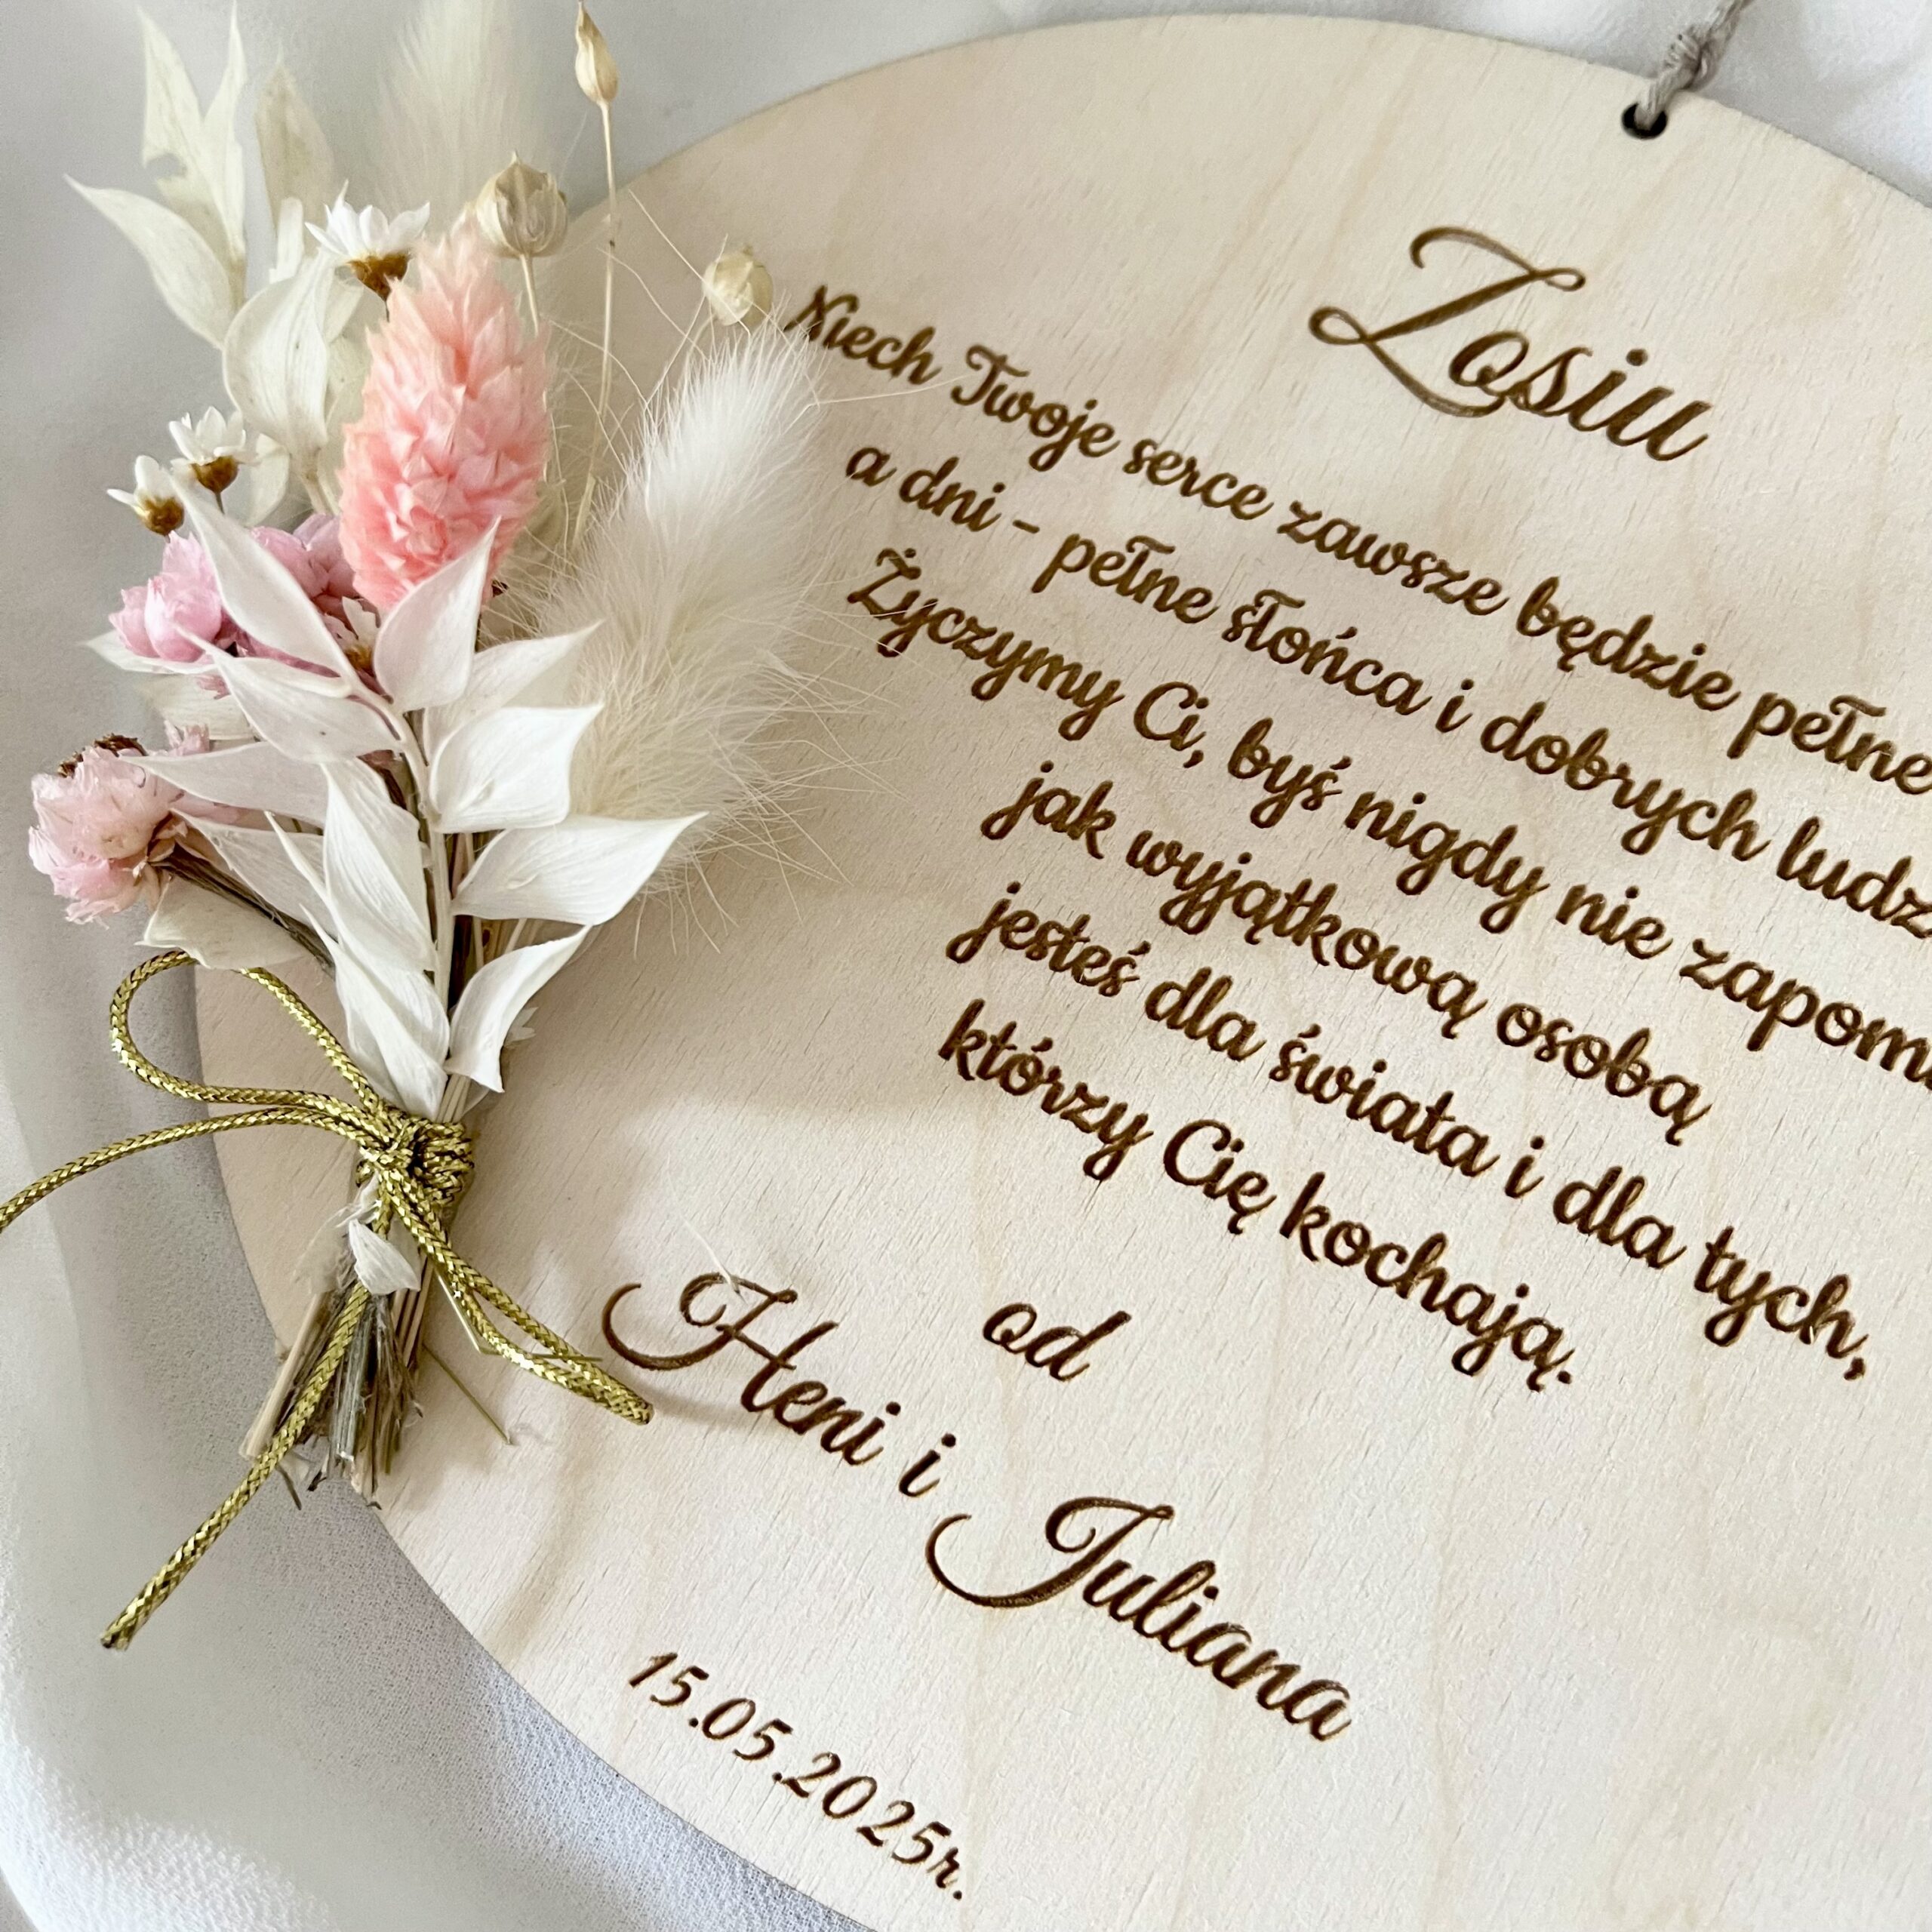 Zosiu
Niech Twoje serce zawsze będzie pełne
a dni - pełne słońca i dobrych
Życzymy Ci, byś nigdy nie
jak wyjątkową osobą
jesteś dla świata i dla tych,
którzy Cię kochają.
od
Heni i Juliana
15.05.2025r.